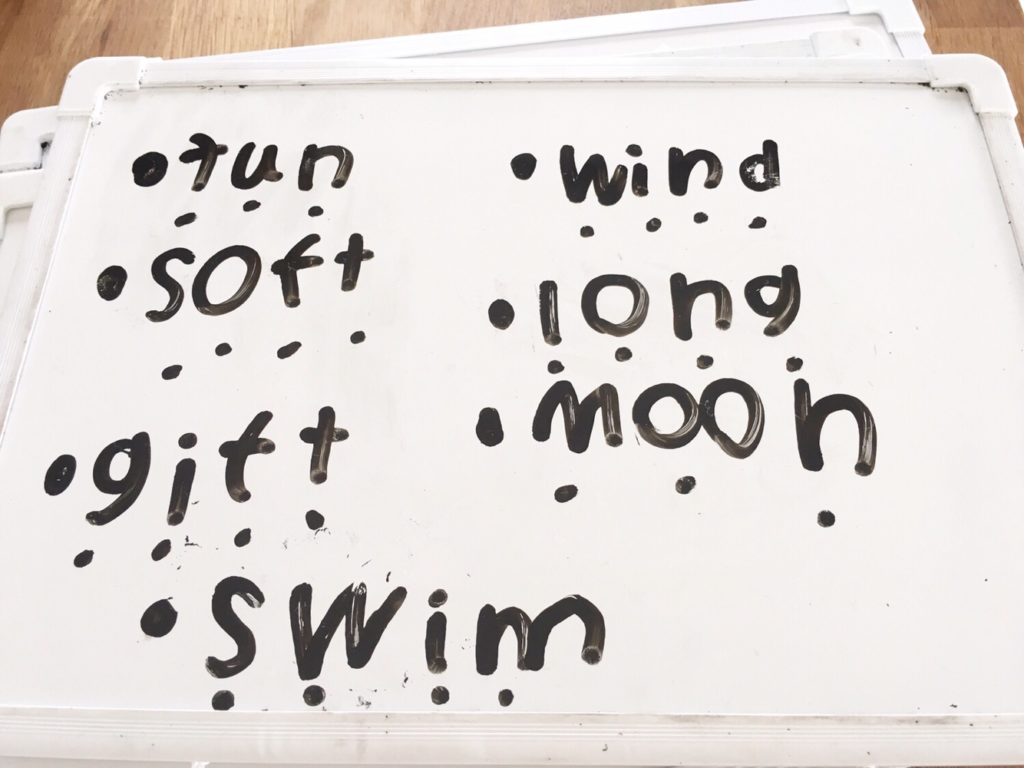 • fun
• soft
• gift
• swim
• wind
• long
• moon